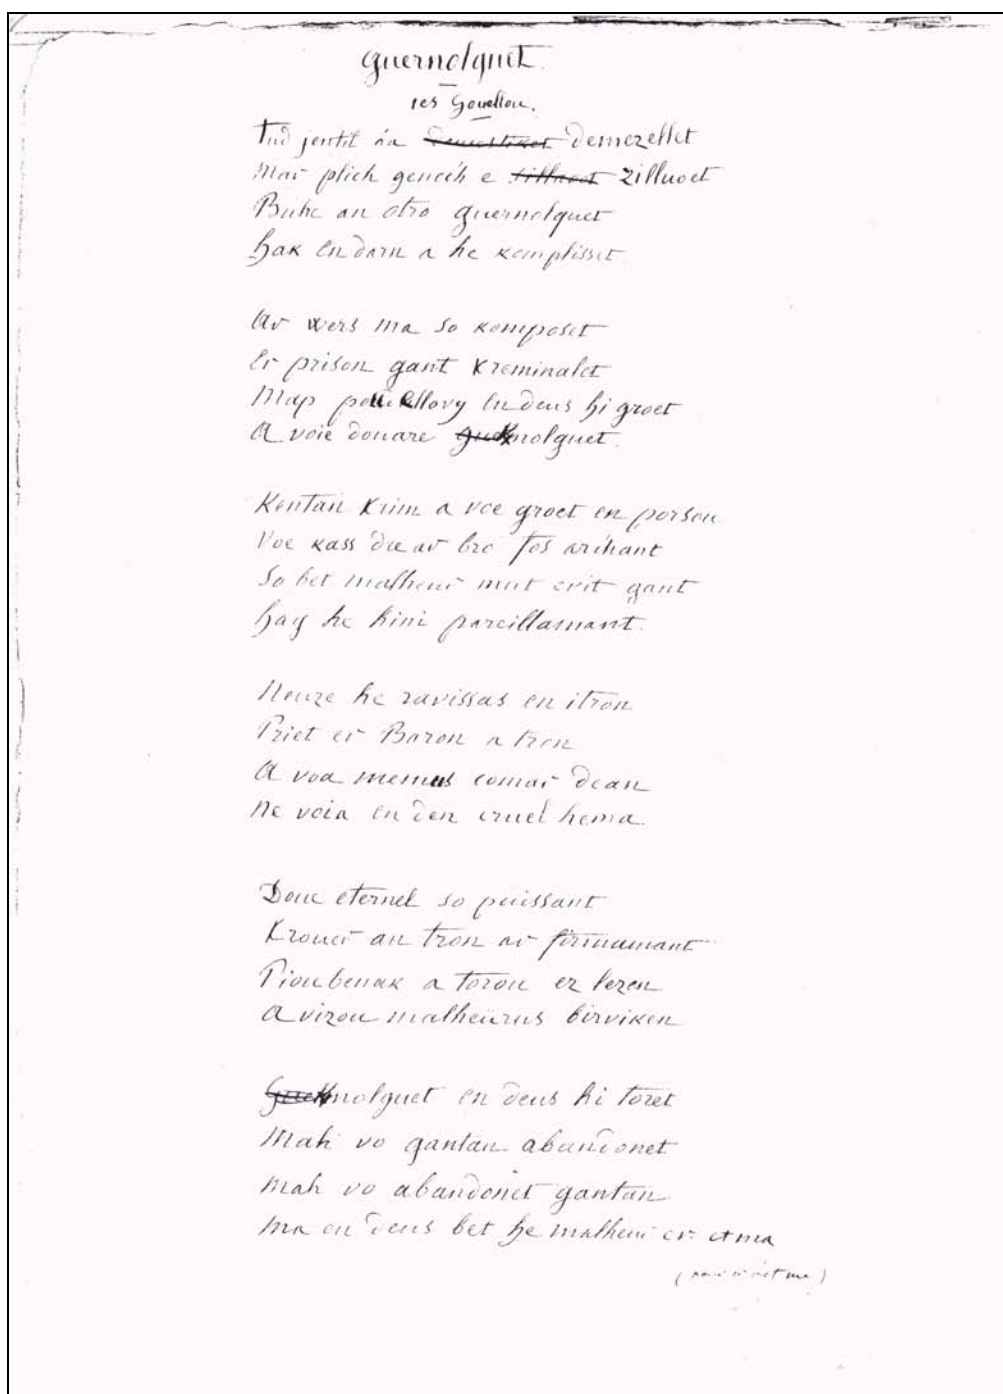 Guernolquet.
ies Gouellou.
Tud jentil ha demezellet
Mar plich genech e zilluoet
Buhe an otro guernolquet
hak en darn a he komplisset.
Ar wers ma so komposet
Er prison gant kreminalet
Map en deus hi groet
A voie douare guernolquet.
Kentan krim a voe groet en porsou
Voe kass d'ar bro fos arihant
So bet malheur mut evit gant
hag he hini pareillamant.
Neuze he ravissas en itron
Priet er Baron a tron
A voa memeus comar dean
Ne voia en den cruel hema
Doue eternel so puissant
Krouer an tron ar firmamant
Pioubenak a torou er lezen
A vizou malheurus birviken
Guernolquet en deus hi toret
Mah vo gantan abandonet
mah vo abandonet gantan
ma en deus bet he malheur er et ma